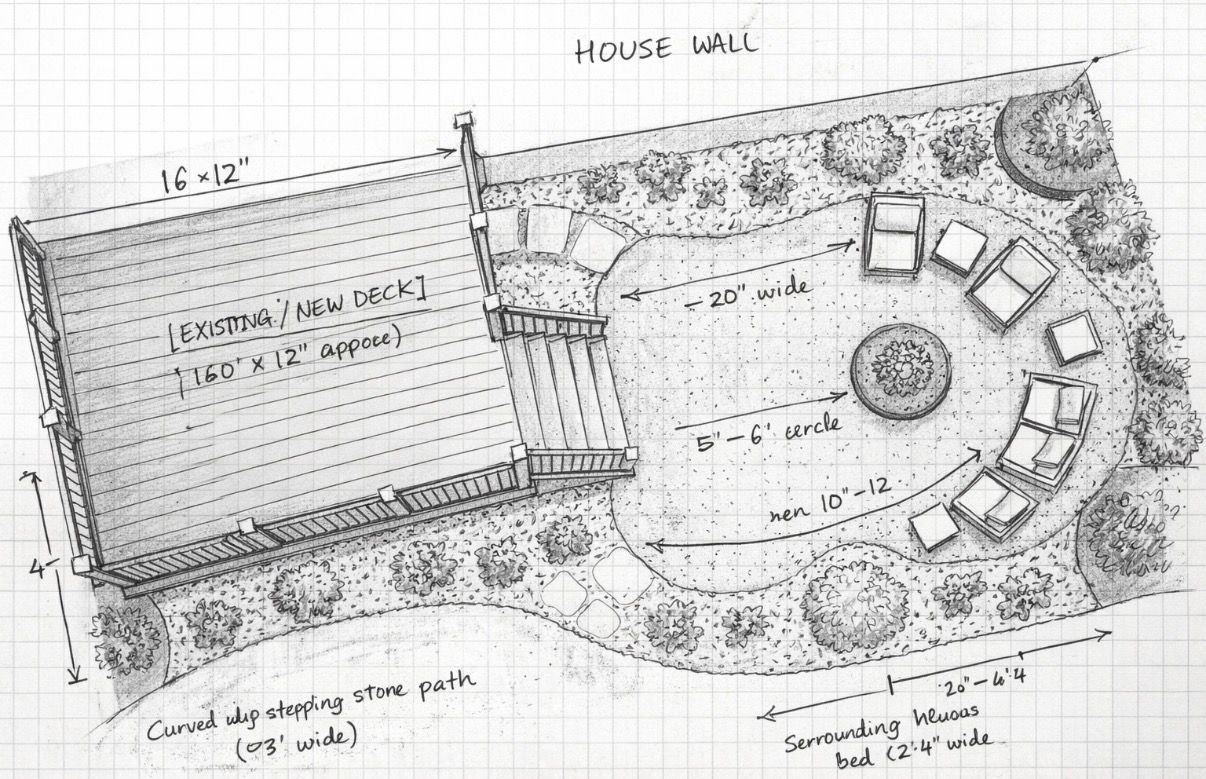 HOUSE WALL
16 × 12"
[EXISTING / NEW DECK]
160' × 12" appoce)
– 20" wide
5" – 6' cercle
nen 10" – 12
4
Curved whp stepping stone path
(○3' wide)
20" – 4'.4
Serrounding hluoas
bed (2'.4" wide